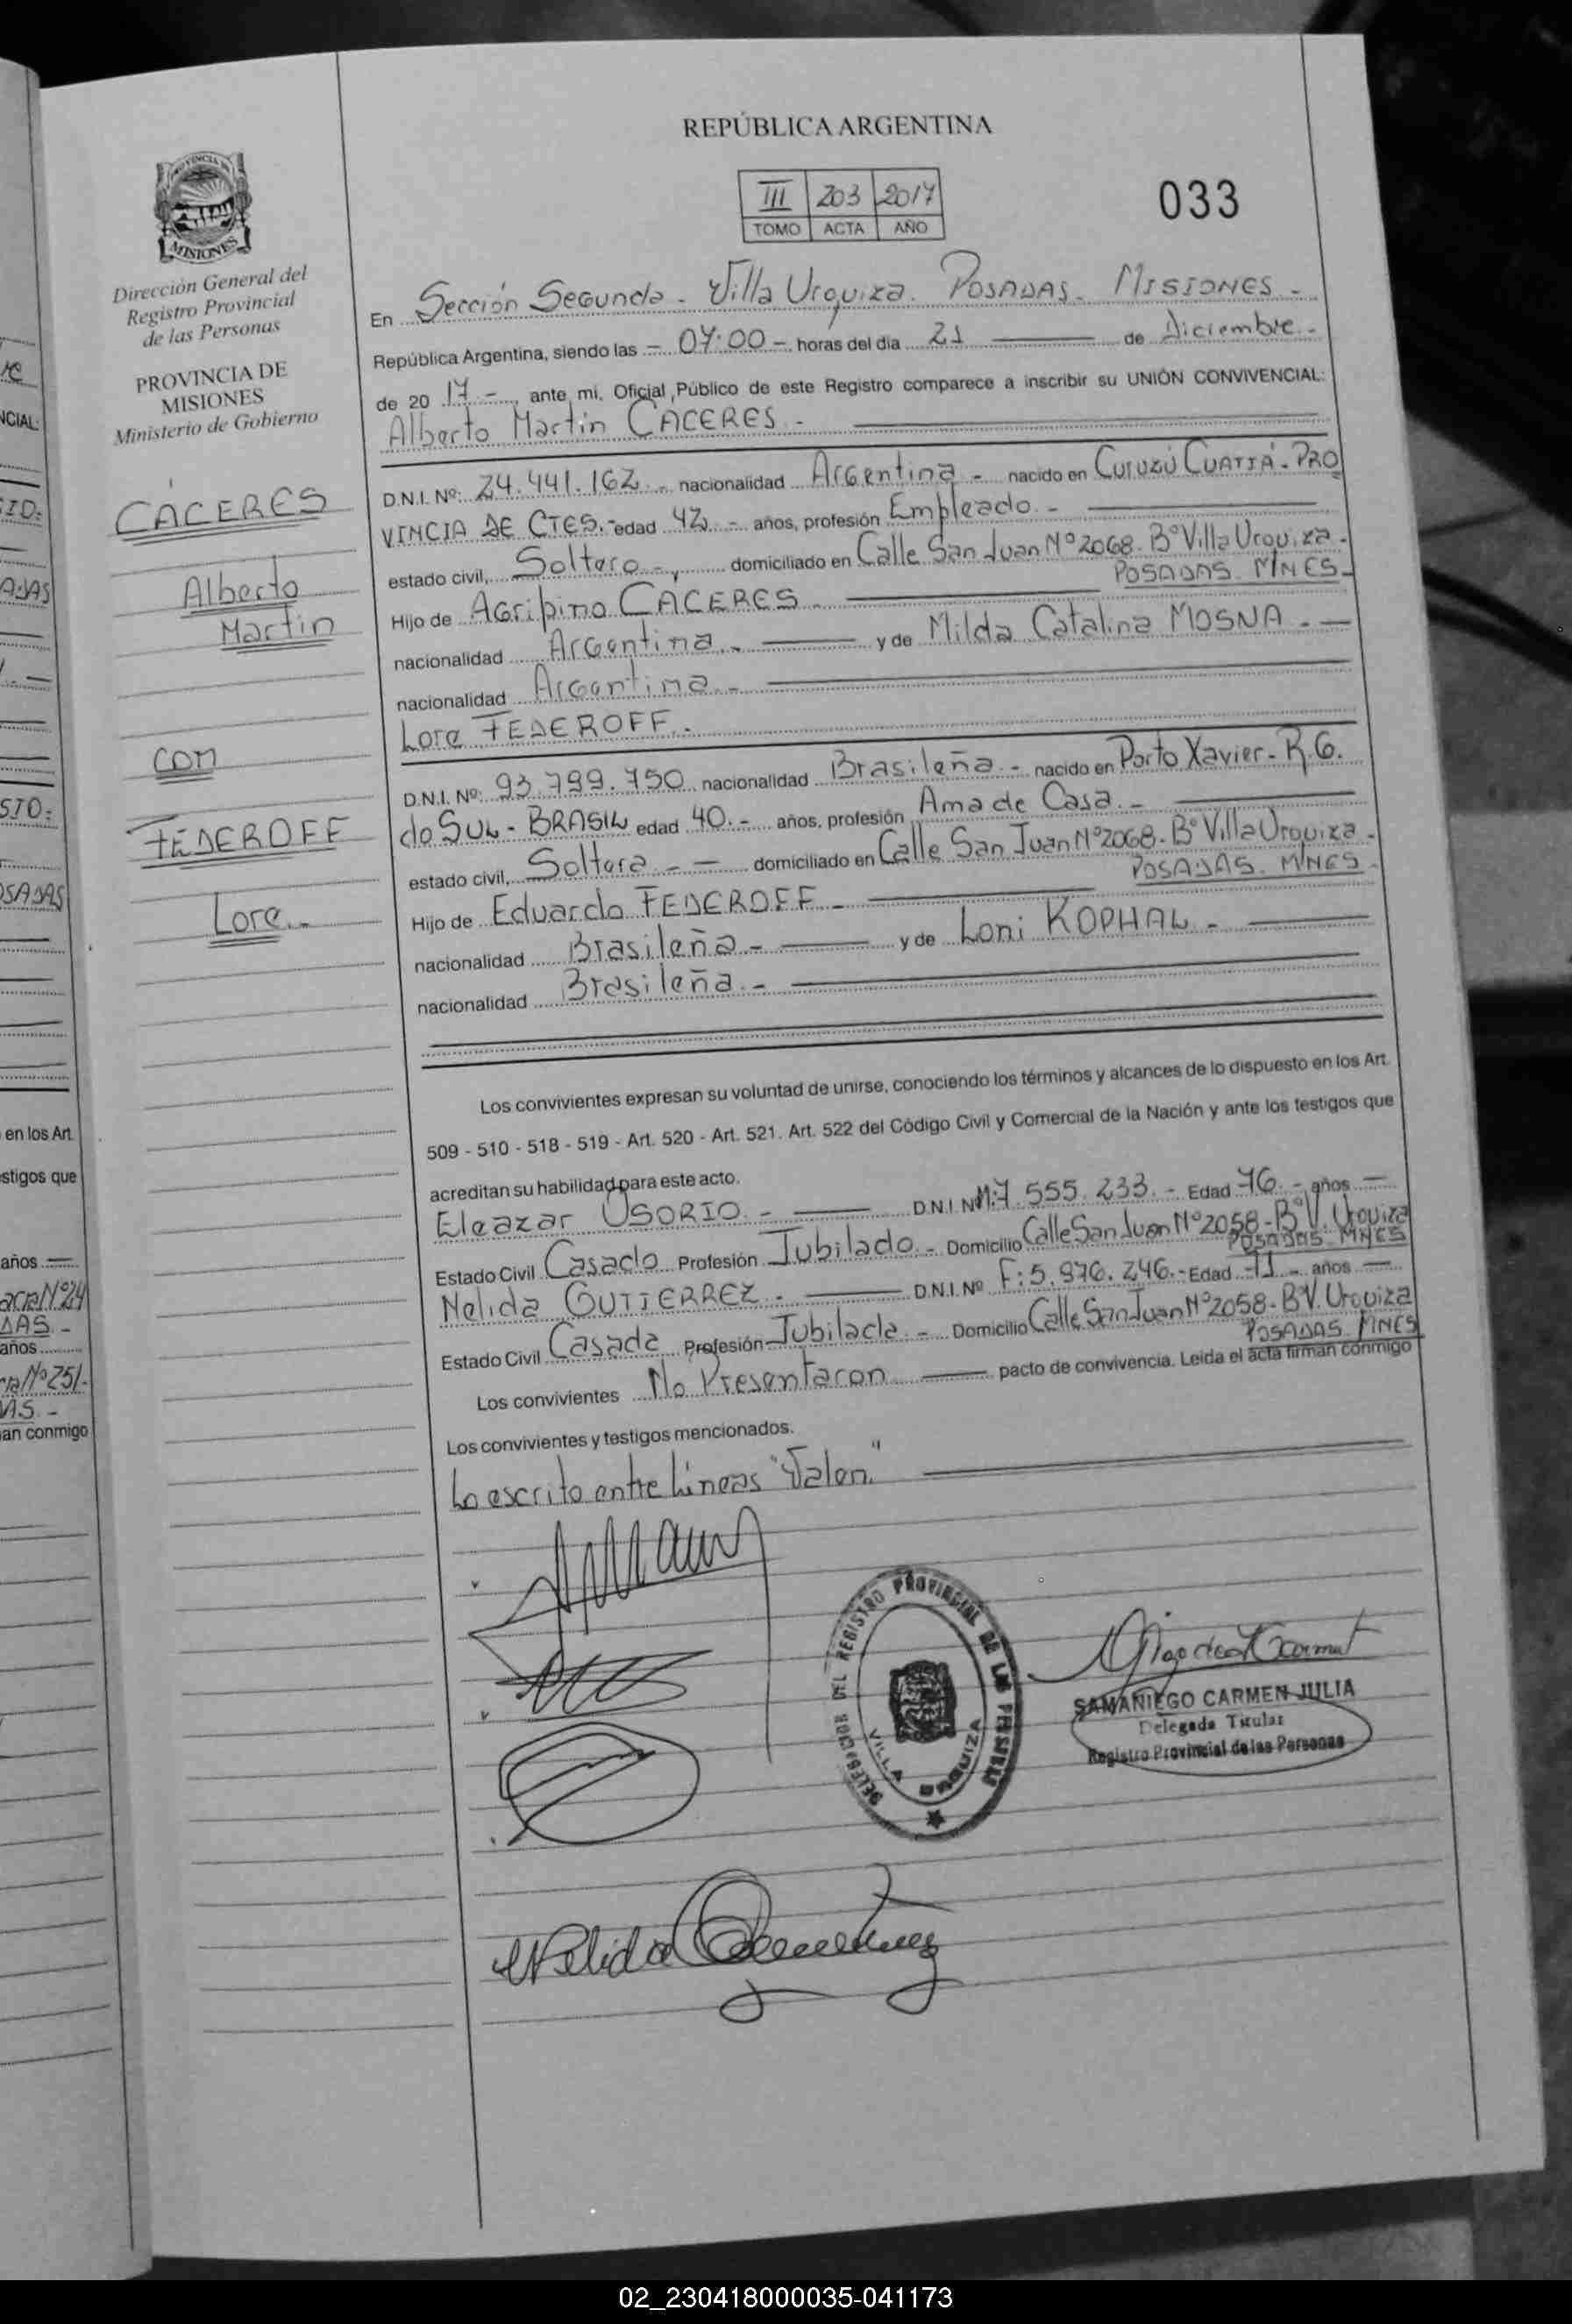 REPÚBLICA ARGENTINA
III 203 2017
TOMO ACTA AÑO
033
PROVINCIA DE
MISIONES
Dirección General del
Registro Provincial
de las Personas
PROVINCIA DE
MISIONES
Ministerio de Gobierno
CÁCERES
Alberto
Martin
con
FEDEROFF
Lore.-
En Sección Segunda - Villa Urquiza. POSADAS - MISIONES -
República Argentina, siendo las - 07:00 -. horas del día 21 de Diciembre.-
de 20 17 - , ante mi, Oficial Público de este Registro comparece a inscribir su UNIÓN CONVIVENCIAL:
Alberto Martin CACERES. -
D.N.I. Nº: 24.441.162. - nacionalidad Argentina - nacido en CURUZÚ CUATIÁ - PRO
VINCIA DE CTES.- edad 42 - años, profesión Empleado. -
estado civil, Soltero -, domiciliado en Calle San Juan Nº 2068. Bº Villa Urquiza.
POSADAS. MNES -
Hijo de Agripino CACERES -
nacionalidad Argentina.- y de Milda Catalina MOSNA. -
nacionalidad Argentina.-
Lore FEDEROFF.-
D.N.I. Nº: 93.799.750 nacionalidad Brasileña - nacido en Porto Xavier - R.G.
do SUL - BRASIL edad 40.- años, profesión Ama de Casa. -
estado civil, Soltera - - domiciliado en Calle San Juan Nº 2068. Bº Villa Urquiza.
POSADAS. MNES.
Hijo de Eduardo FEDEROFF -
nacionalidad Brasileña - y de Loni KOPHAL -
nacionalidad Brasileña. -
Los convivientes expresan su voluntad de unirse, conociendo los términos y alcances de lo dispuesto en los Art.
509 - 510 - 518 - 519 - Art. 520 - Art. 521. Art. 522 del Código Civil y Comercial de la Nación y ante los testigos que
acreditan su habilidad para este acto.
Eleazar OSORIO. - D.N.I. Nº M:7.555.233. - Edad 76. - años -
Estado Civil Casado Profesión Jubilado.- Domicilio Calle San Juan Nº 2058 - Bº V. Urquiza
POSADAS MNES
Nelida GUTIERREZ. - D.N.I. Nº F:5.976.246.- Edad 71 - años -
Estado Civil Casada Profesión Jubilada. - Domicilio Calle San Juan Nº 2058 - Bº V. Urquiza
POSADAS MNES
Los convivientes No Presentaron pacto de convivencia. Leida el acta firman conmigo
Los convivientes y testigos mencionados.
Lo escrito entre Líneas "Valen."
DELEGACION DEL REGISTRO PROVINCIAL DE LAS PERSONAS
VILLA URQUIZA
SAMANIEGO CARMEN JULIA
Delegada Titular
Registro Provincial de las Personas
Nelida
NCIAL:
en los Art.
stigos que
años
años
an conmigo
02_230418000035-041173